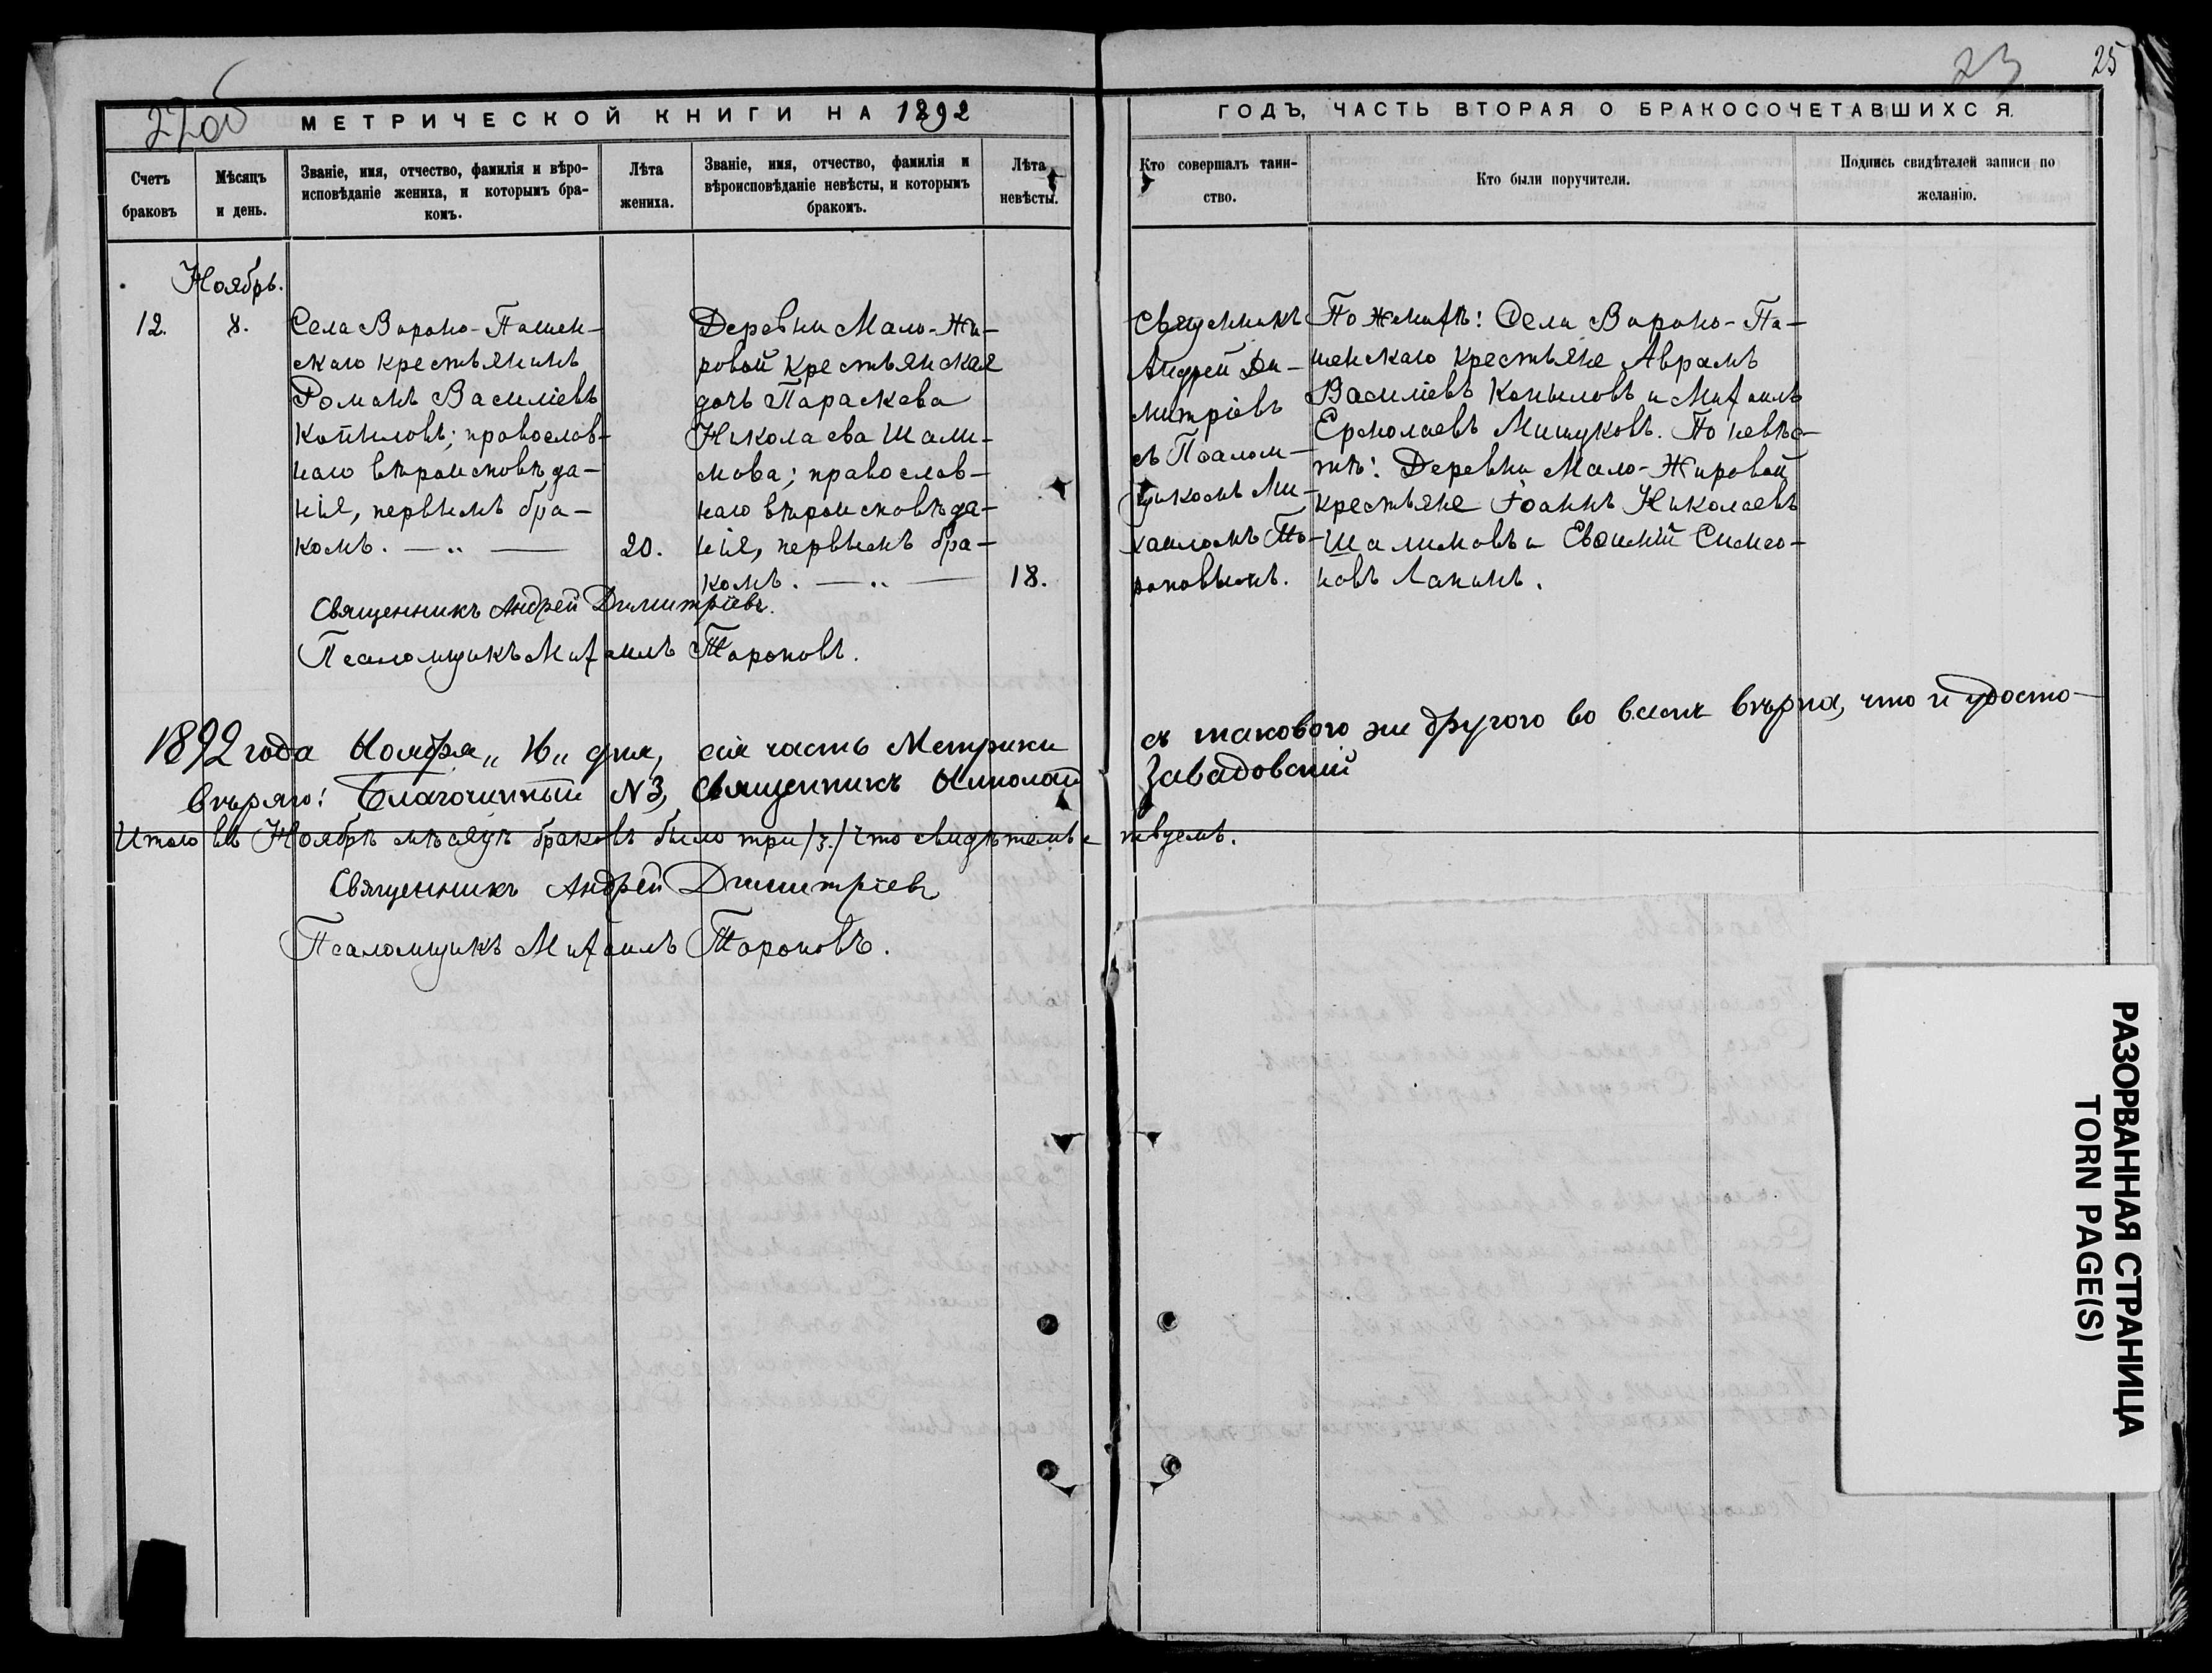 22 об
23
25
МЕТРИЧЕСКОЙ КНИГИ НА 1892
ГОДЪ, ЧАСТЬ ВТОРАЯ О БРАКОСОЧЕТАВШИХСЯ.
Счетъ
браковъ
Мѣсяцъ
и день.
Званіе, имя, отчество, фамилія и вѣро-
исповѣданіе жениха, и которымъ бра-
комъ.
Лѣта
жениха.
Званіе, имя, отчество, фамилія и
вѣроисповѣданіе невѣсты, и которымъ
бракомъ.
Лѣта
невѣсты.
Кто совершалъ таин-
ство.
Кто были поручители.
Подпись свидѣтелей записи по
желанію.
Ноябрь.
12.
8.
Села Вороно-Пашен-
скаго крестьянинъ
Романъ Василіевъ
Копыловъ; православ-
наго вѣроисповѣда-
нія, первымъ бра-
комъ.
20.
Деревни Мало-Жи-
ровой крестьянская
дочь Параскева
Николаева Шали-
мова; православ-
наго вѣроисповѣда-
нія, первымъ бра-
комъ.
18.
Священникъ
Андрей Ди-
митріевъ
съ Псалом-
щикомъ Ми-
хаиломъ То-
роповымъ.
По женихѣ: Села Вороно-Па-
шенскаго крестьяне Аврамъ
Василіевъ Копыловъ и Михаилъ
Ермолаевъ Мишуковъ. По невѣс-
тѣ: Деревни Мало-Жировой
крестьяне Іоаннъ Николаевъ
Шалимовъ и Евфимій Симео-
новъ Лапинъ.
Священникъ Андрей Димитріевъ.
Псаломщикъ Михаилъ Тороповъ.
1892 года Ноября „16„ дня, сія часть Метрики
съ таковою же другою во всемъ вѣрна, что и удосто-
вѣряю! Благочинный №3, Священникъ Николай
Завадовскій
Итого въ Ноябрѣ мѣсяцѣ браковъ было три /3./ Что свидѣтельс
твуемъ.
Священникъ Андрей Димитріевъ
Псаломщикъ Михаилъ Тороповъ.
РАЗОРВАННАЯ СТРАНИЦА
TORN PAGE(S)